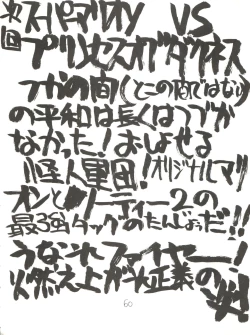 次回 スーパーマリオY VS
プリンセスオブダークネス
つかの間(とこの間ではない)
の平和は長くはつづか
なかった!おしよせる
怪人軍団!オリジナルマリ
オンと ーディー2の
最強タッグのたんじょうだ!!
うなれファイヤー!
燃え上がれ正義の
60